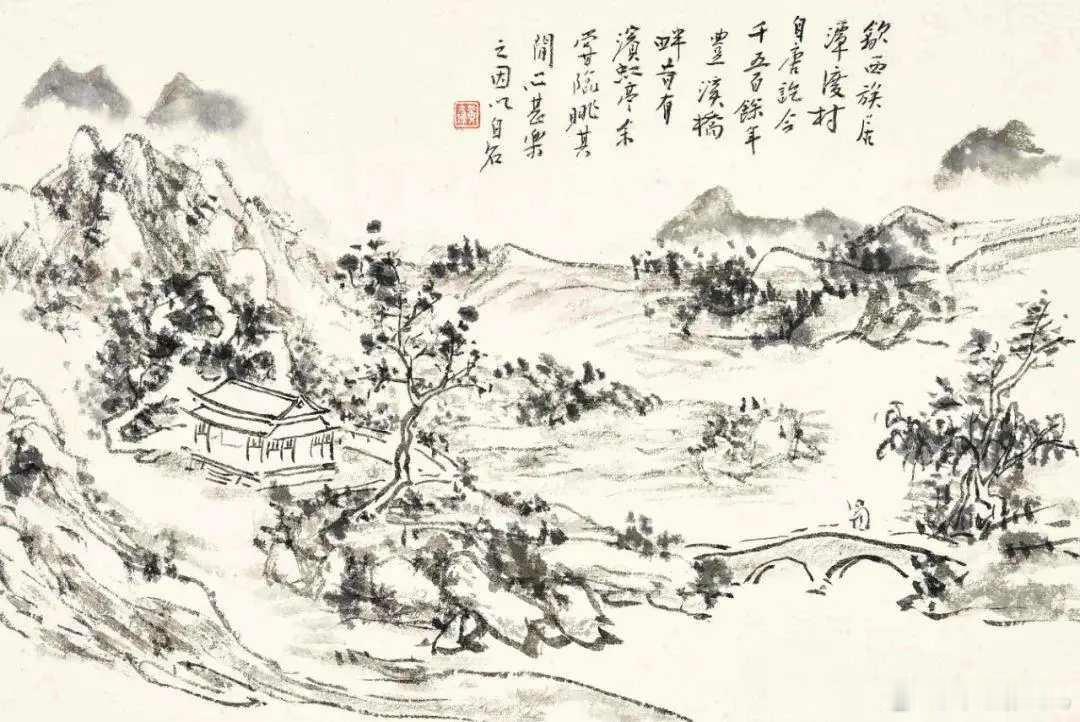 歙西族居
潭渡村
自唐訖今
千五百餘年
豐溪橋
畔昔有
濱虹亭余
嘗臨眺其
間心甚樂
之因以自名